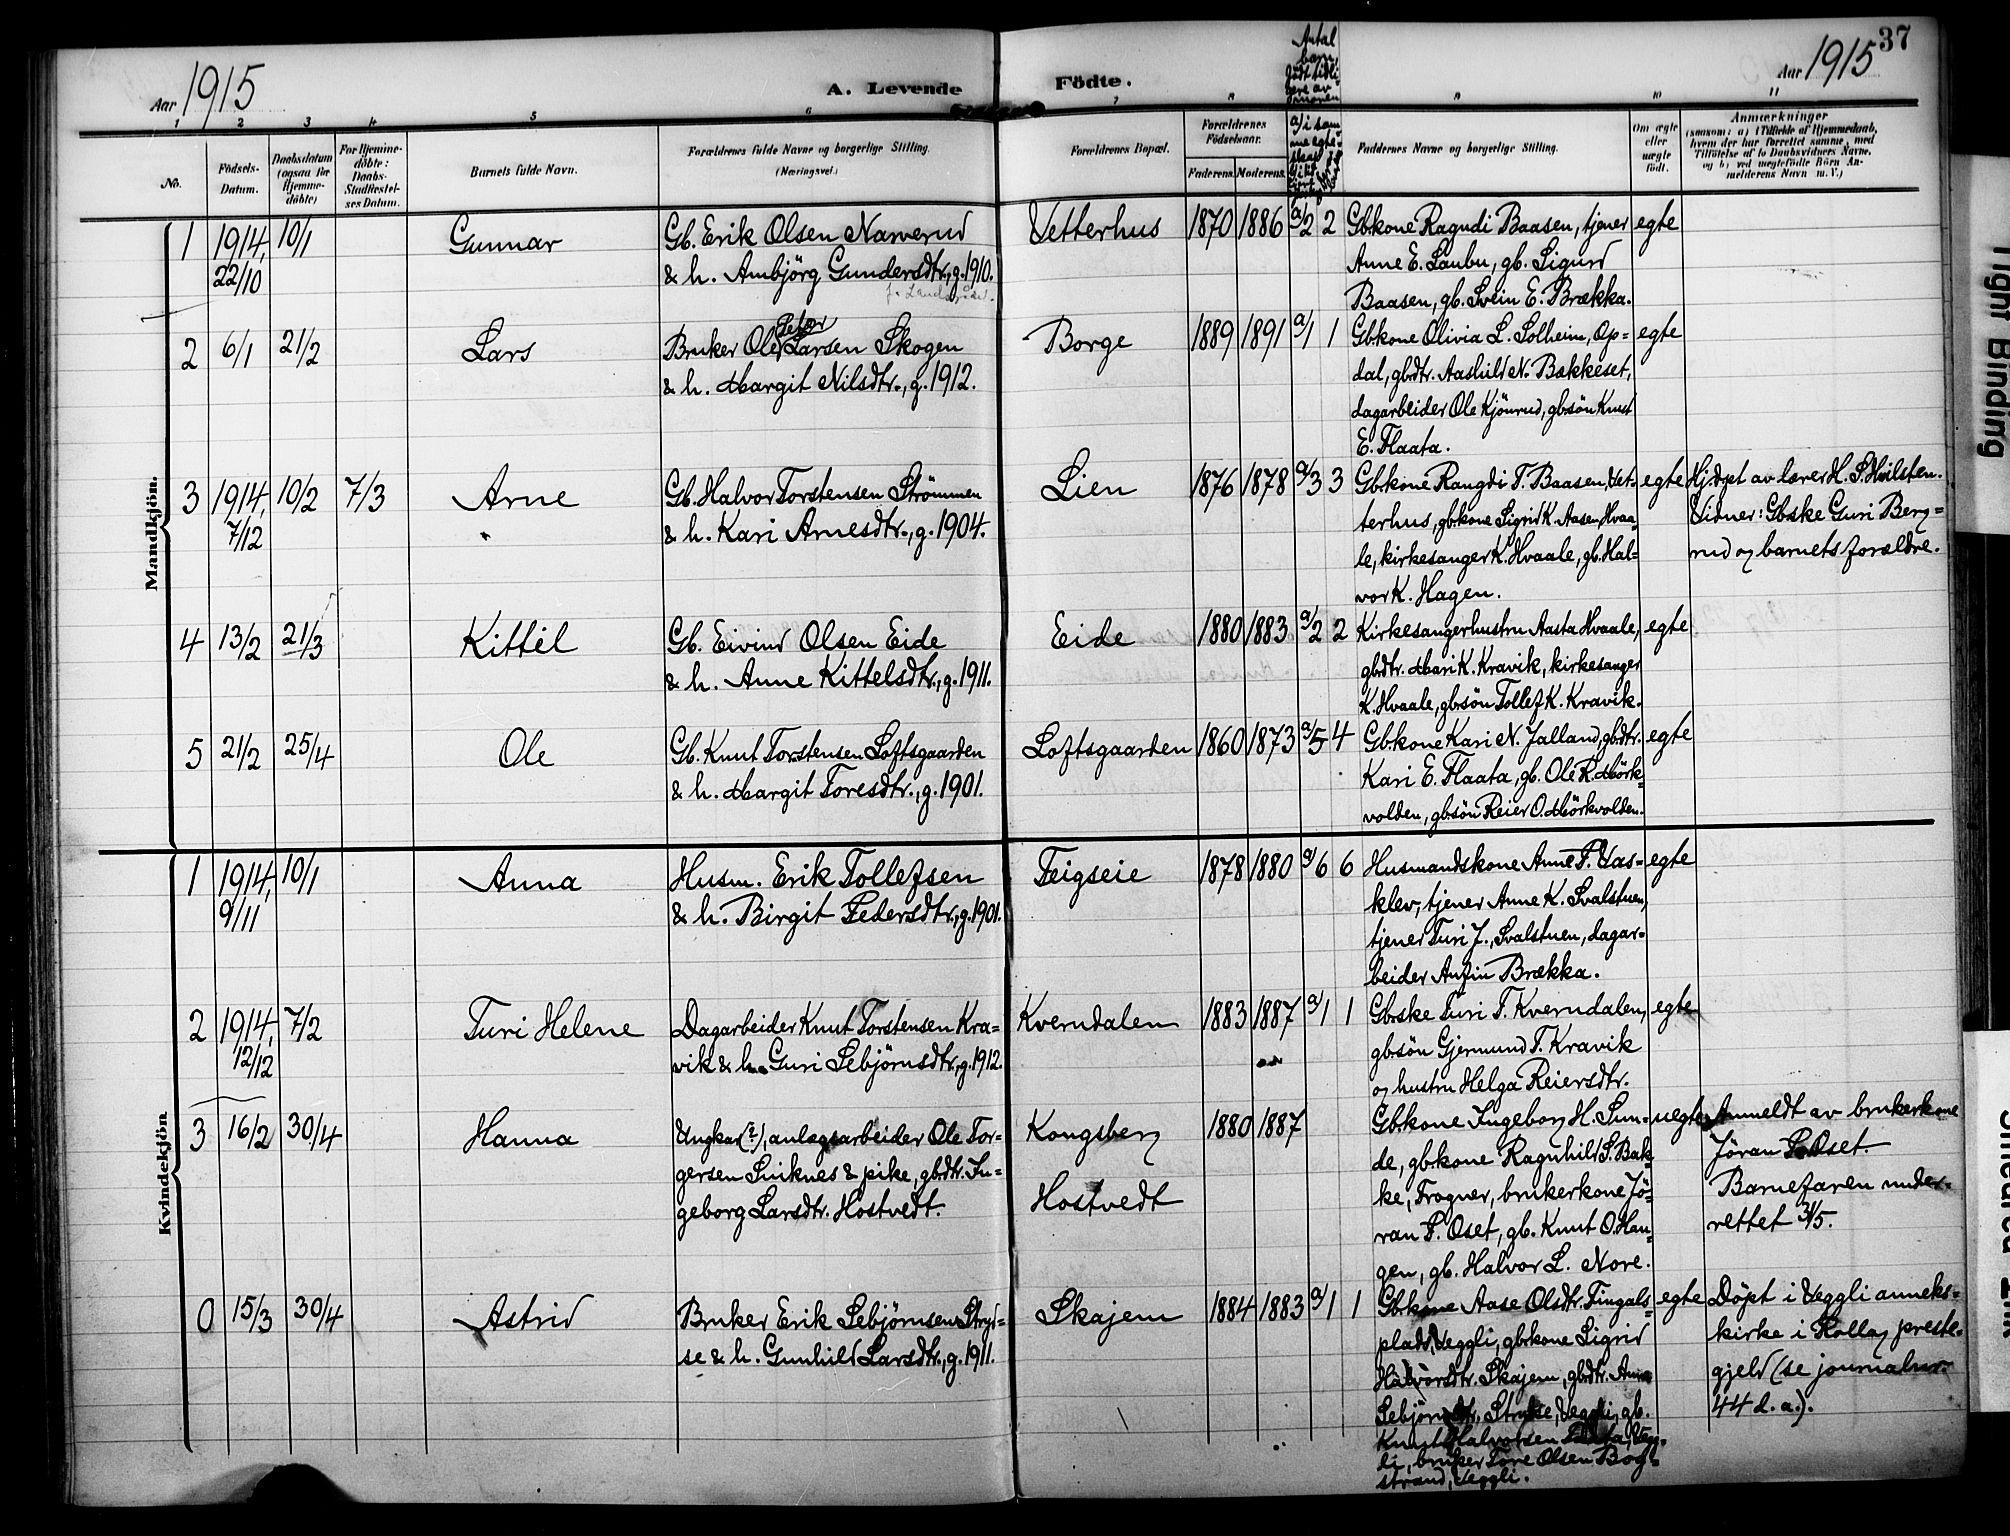 37
Aar 1915
A. Levende
Födte.
Aar 1915
Antal
barn
födt tidli-
gere av
moren
1 2 3 4 5 6 7 8 9 10 11
No.
Födsels-
Datum.
Daabsdatum
(ogsaa for
Hjemme-
döbte)
For Hjemme-
döbte:
Daabs-
Stadfæstel-
ses Datum.
Barnets fulde Navn.
Forældrenes fulde Navne og borgerlige Stilling.
(Næringsvei.)
Forældrenes Bopæl.
Forældrenes
Födselsaar.
Faderens.
Moderens.
Faddernes Navne og borgerlige Stilling.
Om ægte
eller
uægte
födt.
Anmærkninger
(saasom: a) i Tilfælde af Hjemmedaab,
hvem der har forrettet samme, med
Tilföielse af to Daabsvidners Navne,
og b) ved uegtefödte Börn An-
melderens Navn m. V.)
Mandkjön.
1 1914, 22/10 10/1 Gunnar
Gb. Erik Olsen Narverud
& h. Ambjörg Gundersdtr., g. 1910.
Vetterhus 1870 1886 a/2 2
Gbkone Ragndi Baasen, tjener
Anne E. Laubu, gb. Sigurd
Baasen, gb. Svein E. Brækka.
egte
2 6/1 21/2 Lars
Peter
Bruker Ole Larsen Skogen
& h. Margit Nilsdtr., g. 1912.
Borge 1889 1891 a/1 1
Gbkone Olivia L. Solheim, Op-
dal, gbdtr. Aashild N. Bakkeset,
dagarbeider Ole Kjönrud, gbsön Knut
E. Flaata.
egte
3 1914, 7/12 10/2 7/3 Arne
Gb. Halvor Torstensen Strömmen
& h. Kari Arnesdtr., g. 1904.
Lien 1876 1878 a/3 3
Gbkone Rangdi T. Baasen, Vet-
terhus, gbkone Sigrid K. Aasen, Hvaa-
le, kirkesanger K. Hvaale, gb. Hal-
vor K. Hagen.
egte
Hj.döpt av lærer H. S. Hvilsten.
Vidner: Gbske Guri Berg-
rud og barnets forældre.
4 13/2 21/3 Kittil
Gb. Eivind Olsen Eide
& h. Anne Kittelsdtr., g. 1911.
Eide 1880 1883 a/2 2
Kirkesangerhustru Aasta Hvaale,
gbdtr. Mari K. Kravik, kirkesanger
K. Hvaale, gbsön Tollef K. Kravik.
egte
5 21/2 25/4 Ole
Gb. Knut Torstensen Loftsgaarden
& h. Margit Toresdtr., g. 1901.
Loftsgaarden 1860 1873 a/5 4
Gbkone Kari N. Jalland, gbdtr.
Kari E. Flaata, gb. Ole R. Mörk-
volden, gbsön Reier O. Mörkvolden.
egte
Kvindekjön
1 1914, 9/11 10/1 Anna
Husm. Erik Tollefsen
& h. Birgit Pedersdtr., g. 1901.
Teigseie 1878 1880 a/6 6
Husmandskone Anne P. Vas-
klev, tjener Anne K. Svalstuen,
tjener Turi J. Svalstuen, dagar-
beider Anfin Brækka.
egte
2 1914, 12/12 7/2 Turi Helene
Dagarbeider Knut Torstensen Kra-
vik & h. Guri Sebjörnsdtr., g. 1912.
Kverndalen 1883 1887 a/1 1
Gbske Turi T. Kverndalen,
gbsön Gjermund T. Kravik
og hustru Helga Reiersdtr.
egte
3 16/2 30/4 Hanna
Ungkar (?), anlægsarbeider Ole Tor-
gersen Sniknes & pike, gbdtr. In-
geborg Larsdtr. Hostvedt.
Kongsberg
Hostvedt
1880 1887
Gbkone Ingeborg H. Sun-
de, gbkone Ragnhild S. Bak-
ke, Frogner, brukerkone Jö-
ran P. Oset, gb. Knut O. Hau-
gen, gb. Halvor L. Nore.
uegte
Anmeldt av brukerkone
Jöran P. Oset.
Barnefaren under-
rettet 31/5.
0 15/3 30/4 Astrid
Bruker Erik Sebjörnsen Stryd-
se & h. Gunhild Larsdtr., g. 1911.
Skajem 1884 1883 a/1 1
Gbkone Aase Olsdtr. Fingals-
plads, Veggli, gbkone Sigrid
Halvorsdtr. Skajem, gbdtr. Anna
Sebjörnsdtr. Strydse, Veggli, gb.
Knut Halvorsen Flaata, Veg-
li, bruker Tore Olsen Bog-
strand, Veggli.
egte
Döpt i Veggli anneks-
kirke i Rollag preste-
gjeld (se journalnr.
44 d. a.).
Tight Binding